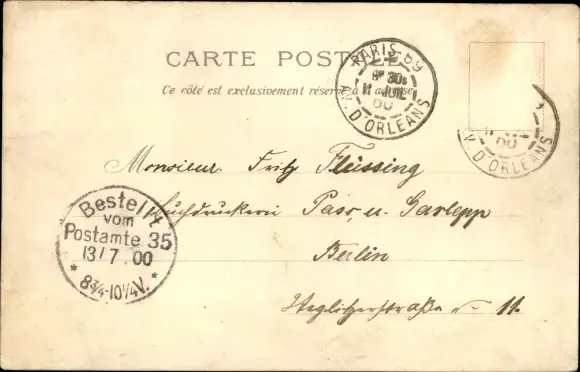 CARTE POSTALE
Ce côté est exclusivement réservé à l'adresse
PARIS 89
8E 30s
11 JUIL
00
AV. D'ORLEANS
00
AV. D'ORLEANS
Monsieur. Fritz Flessing
Buchdruckerei Pass u. Garlepp
Berlin
Steglitzerstraße 11.
Bestellt
vom
Postamte 35
13/7.00
8¾-10¼V.